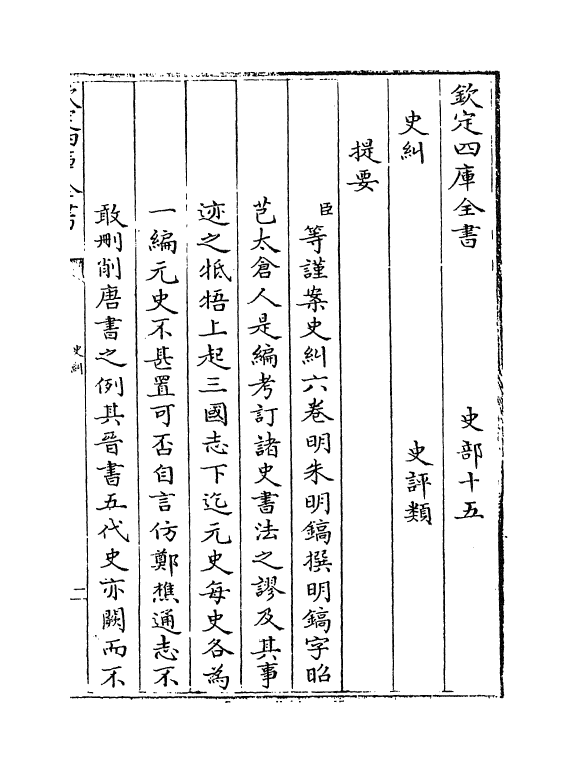 欽定四庫全書　史部十五
史糾　史評類
提要
臣等謹案史糾六卷明朱明鎬撰明鎬字昭
芑太倉人是編考訂諸史書法之謬及其事
迹之牴牾上起三國志下迄元史每史各為
一編元史不甚置可否自言仿鄭樵通志不
敢刪削唐書之例其晉書五代史亦闕而不
欽定四庫全書　史糾　二